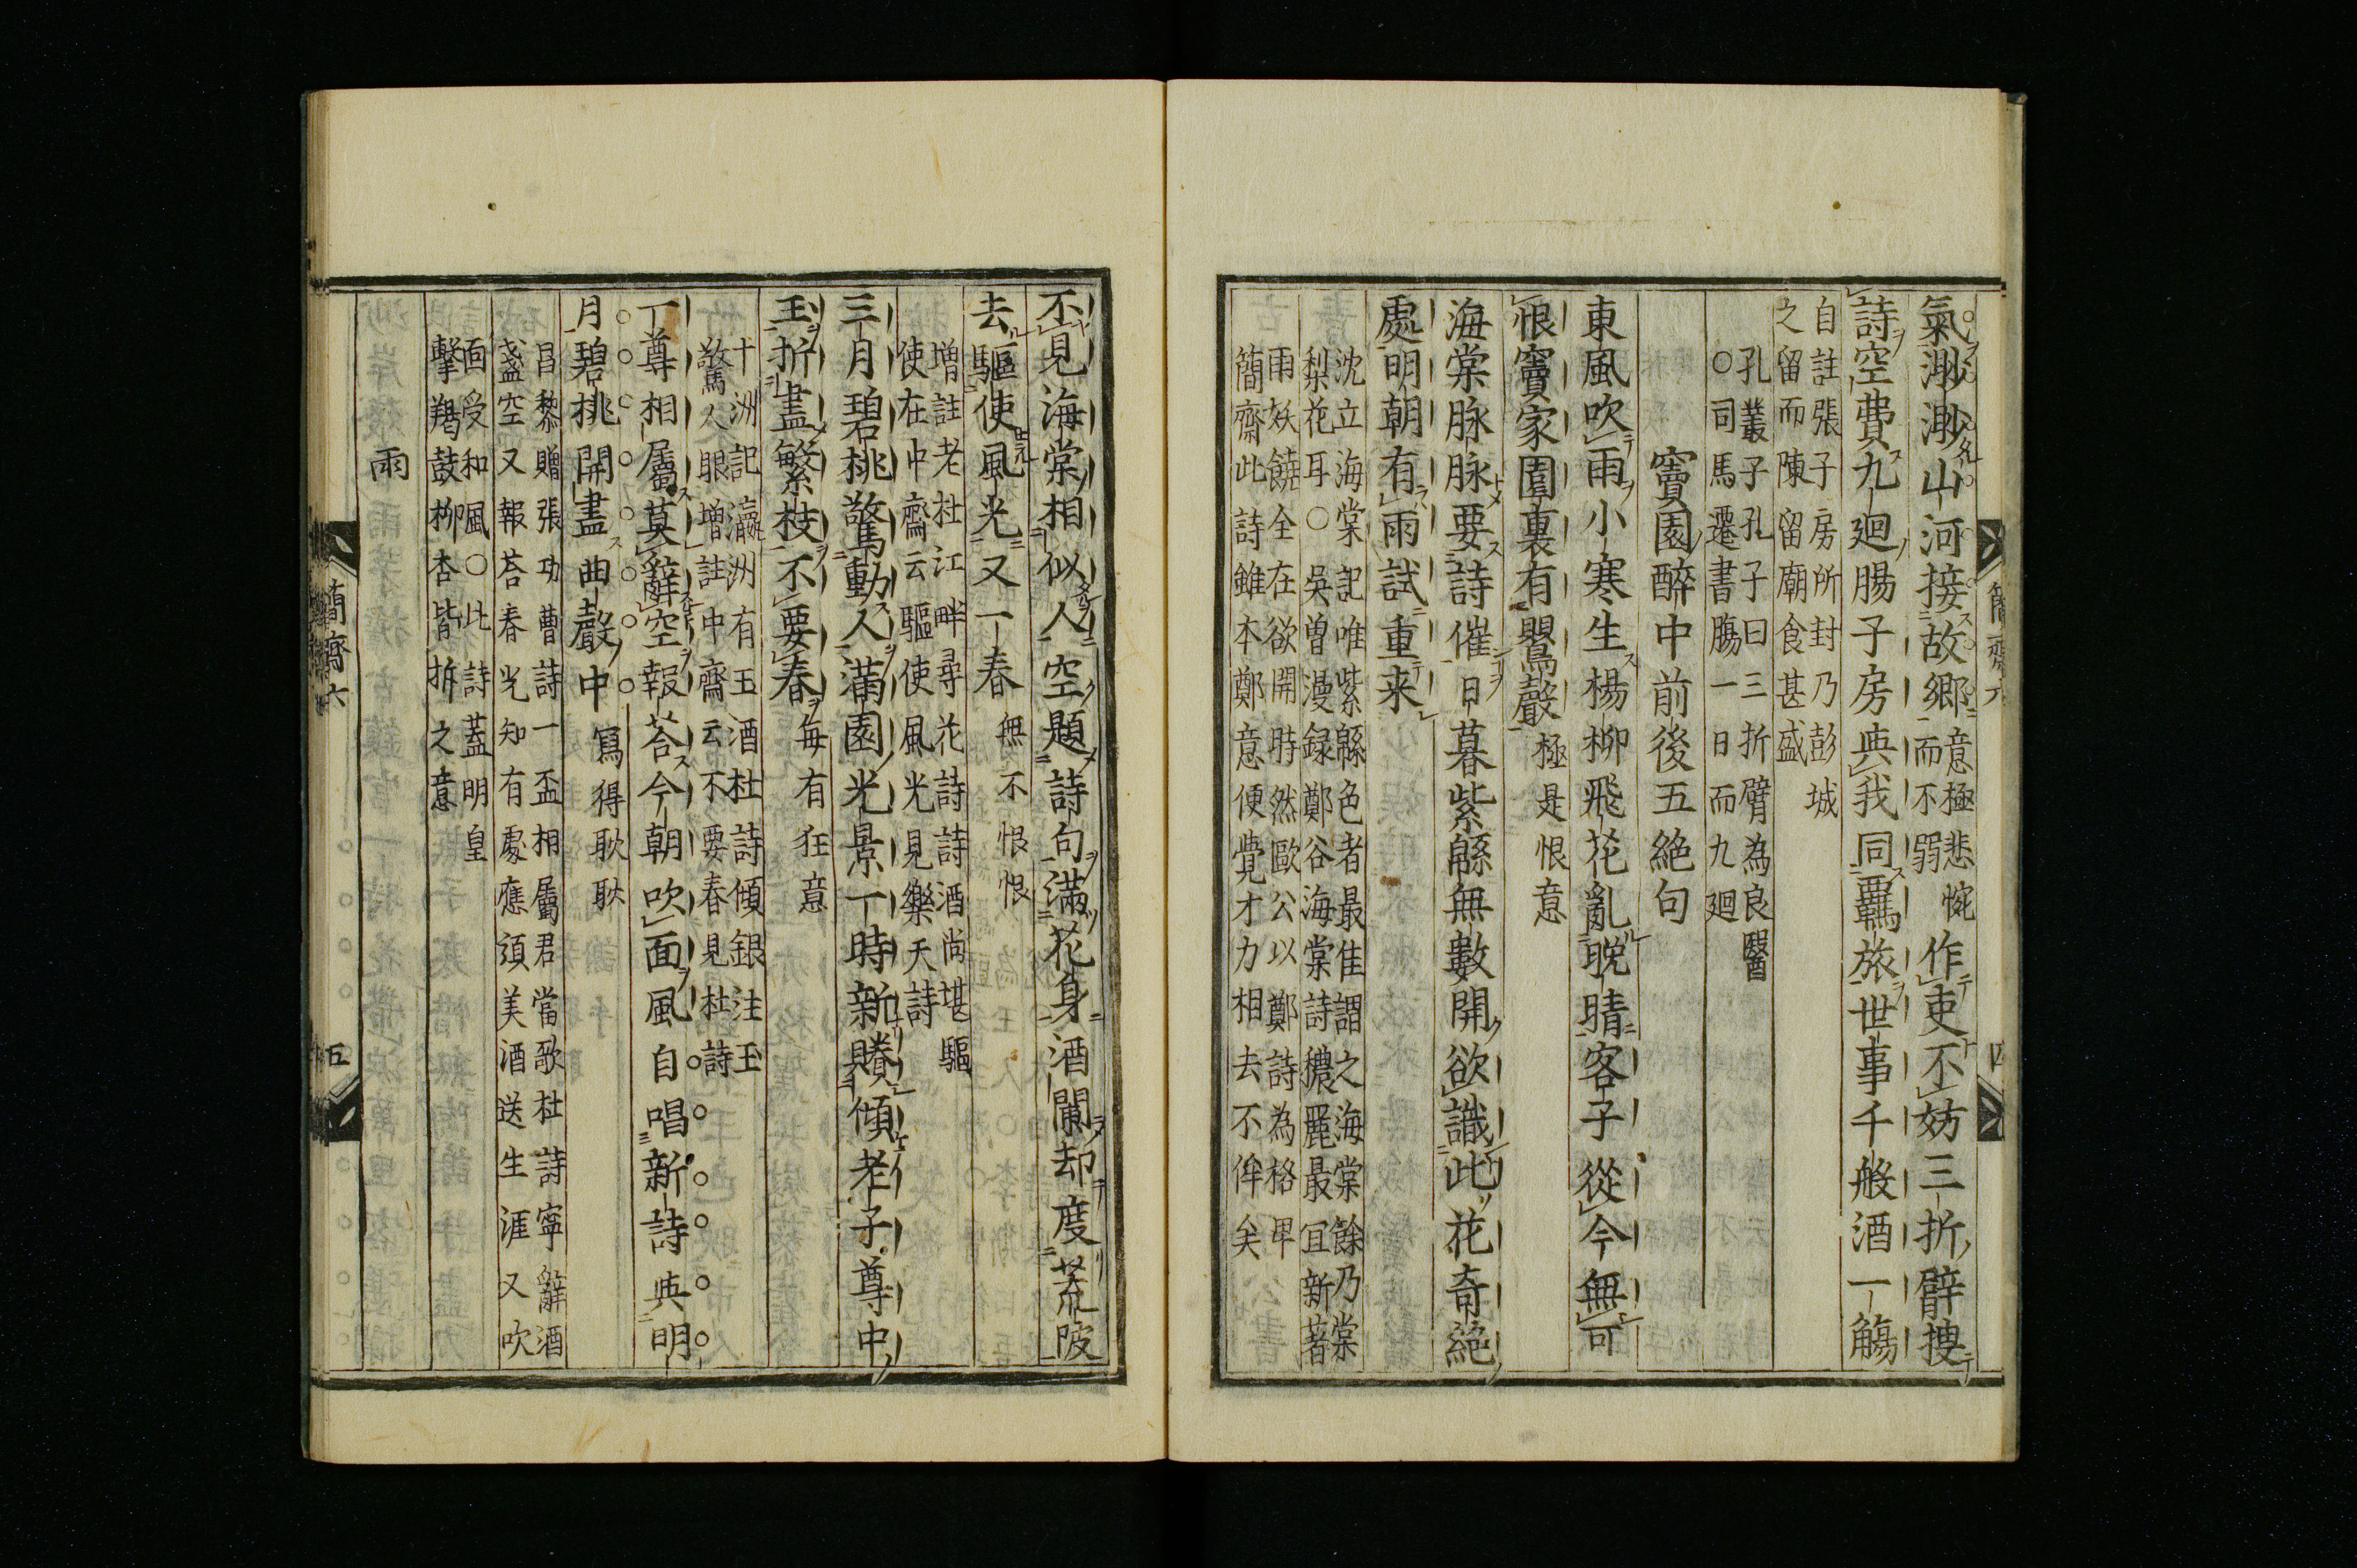 氣渺渺山河接故鄉意極悲惋而不弱作吏不妨三折臂捜
詩空費九廻腸子房與我同羈旅世事千般酒一觴
自註張子房所封乃彭城
之留而陳留廟食甚盛
孔叢子孔子曰三折臂為良醫
○司馬遷書腸一日而九廻
竇園醉中前後五絶句
東風吹雨小寒生楊柳飛花亂晚晴客子從今無可
恨竇家園裏有鸎聲極是恨意
海棠脉脉要詩催日暮紫緜無數開欲識此花奇絶
處明朝有雨試重来
沈立海棠記唯紫緜色者最佳謂之海棠餘乃棠
梨花耳○吳曽漫録鄭谷海棠詩穠麗最宜新著
雨妖饒全在欲開時然歐公以鄭詩為格卑
簡齋此詩雖本鄭意便覺才力相去不侔矣
簡齋六
四
不見海棠相似人空題詩句滿花身酒闌却度荒陂
去驅使風光又一春無不恨恨
増註老杜江畔尋花詩詩酒尚堪驅
使在中齋云驅使風光見樂天詩
三月碧桃驚動人滿園光景一時新賸傾老子尊中
玉折盡繁枝不要春毎有狂意
十洲記瀛洲有玉酒杜詩傾銀注玉
驚人眼増註中齋云不要春見杜詩
一尊相屬莫辭空報荅今朝吹面風自唱新詩與明
月碧桃開盡曲聲中寫得耿耿
吕黎贈張功曹詩一盃相屬君當歌杜詩寧辭酒
盞空又報荅春光知有處應須美酒送生涯又吹
面受和風○此詩蓋明皇
擊羯鼓柳杏皆拆之意
雨
簡齋六
五